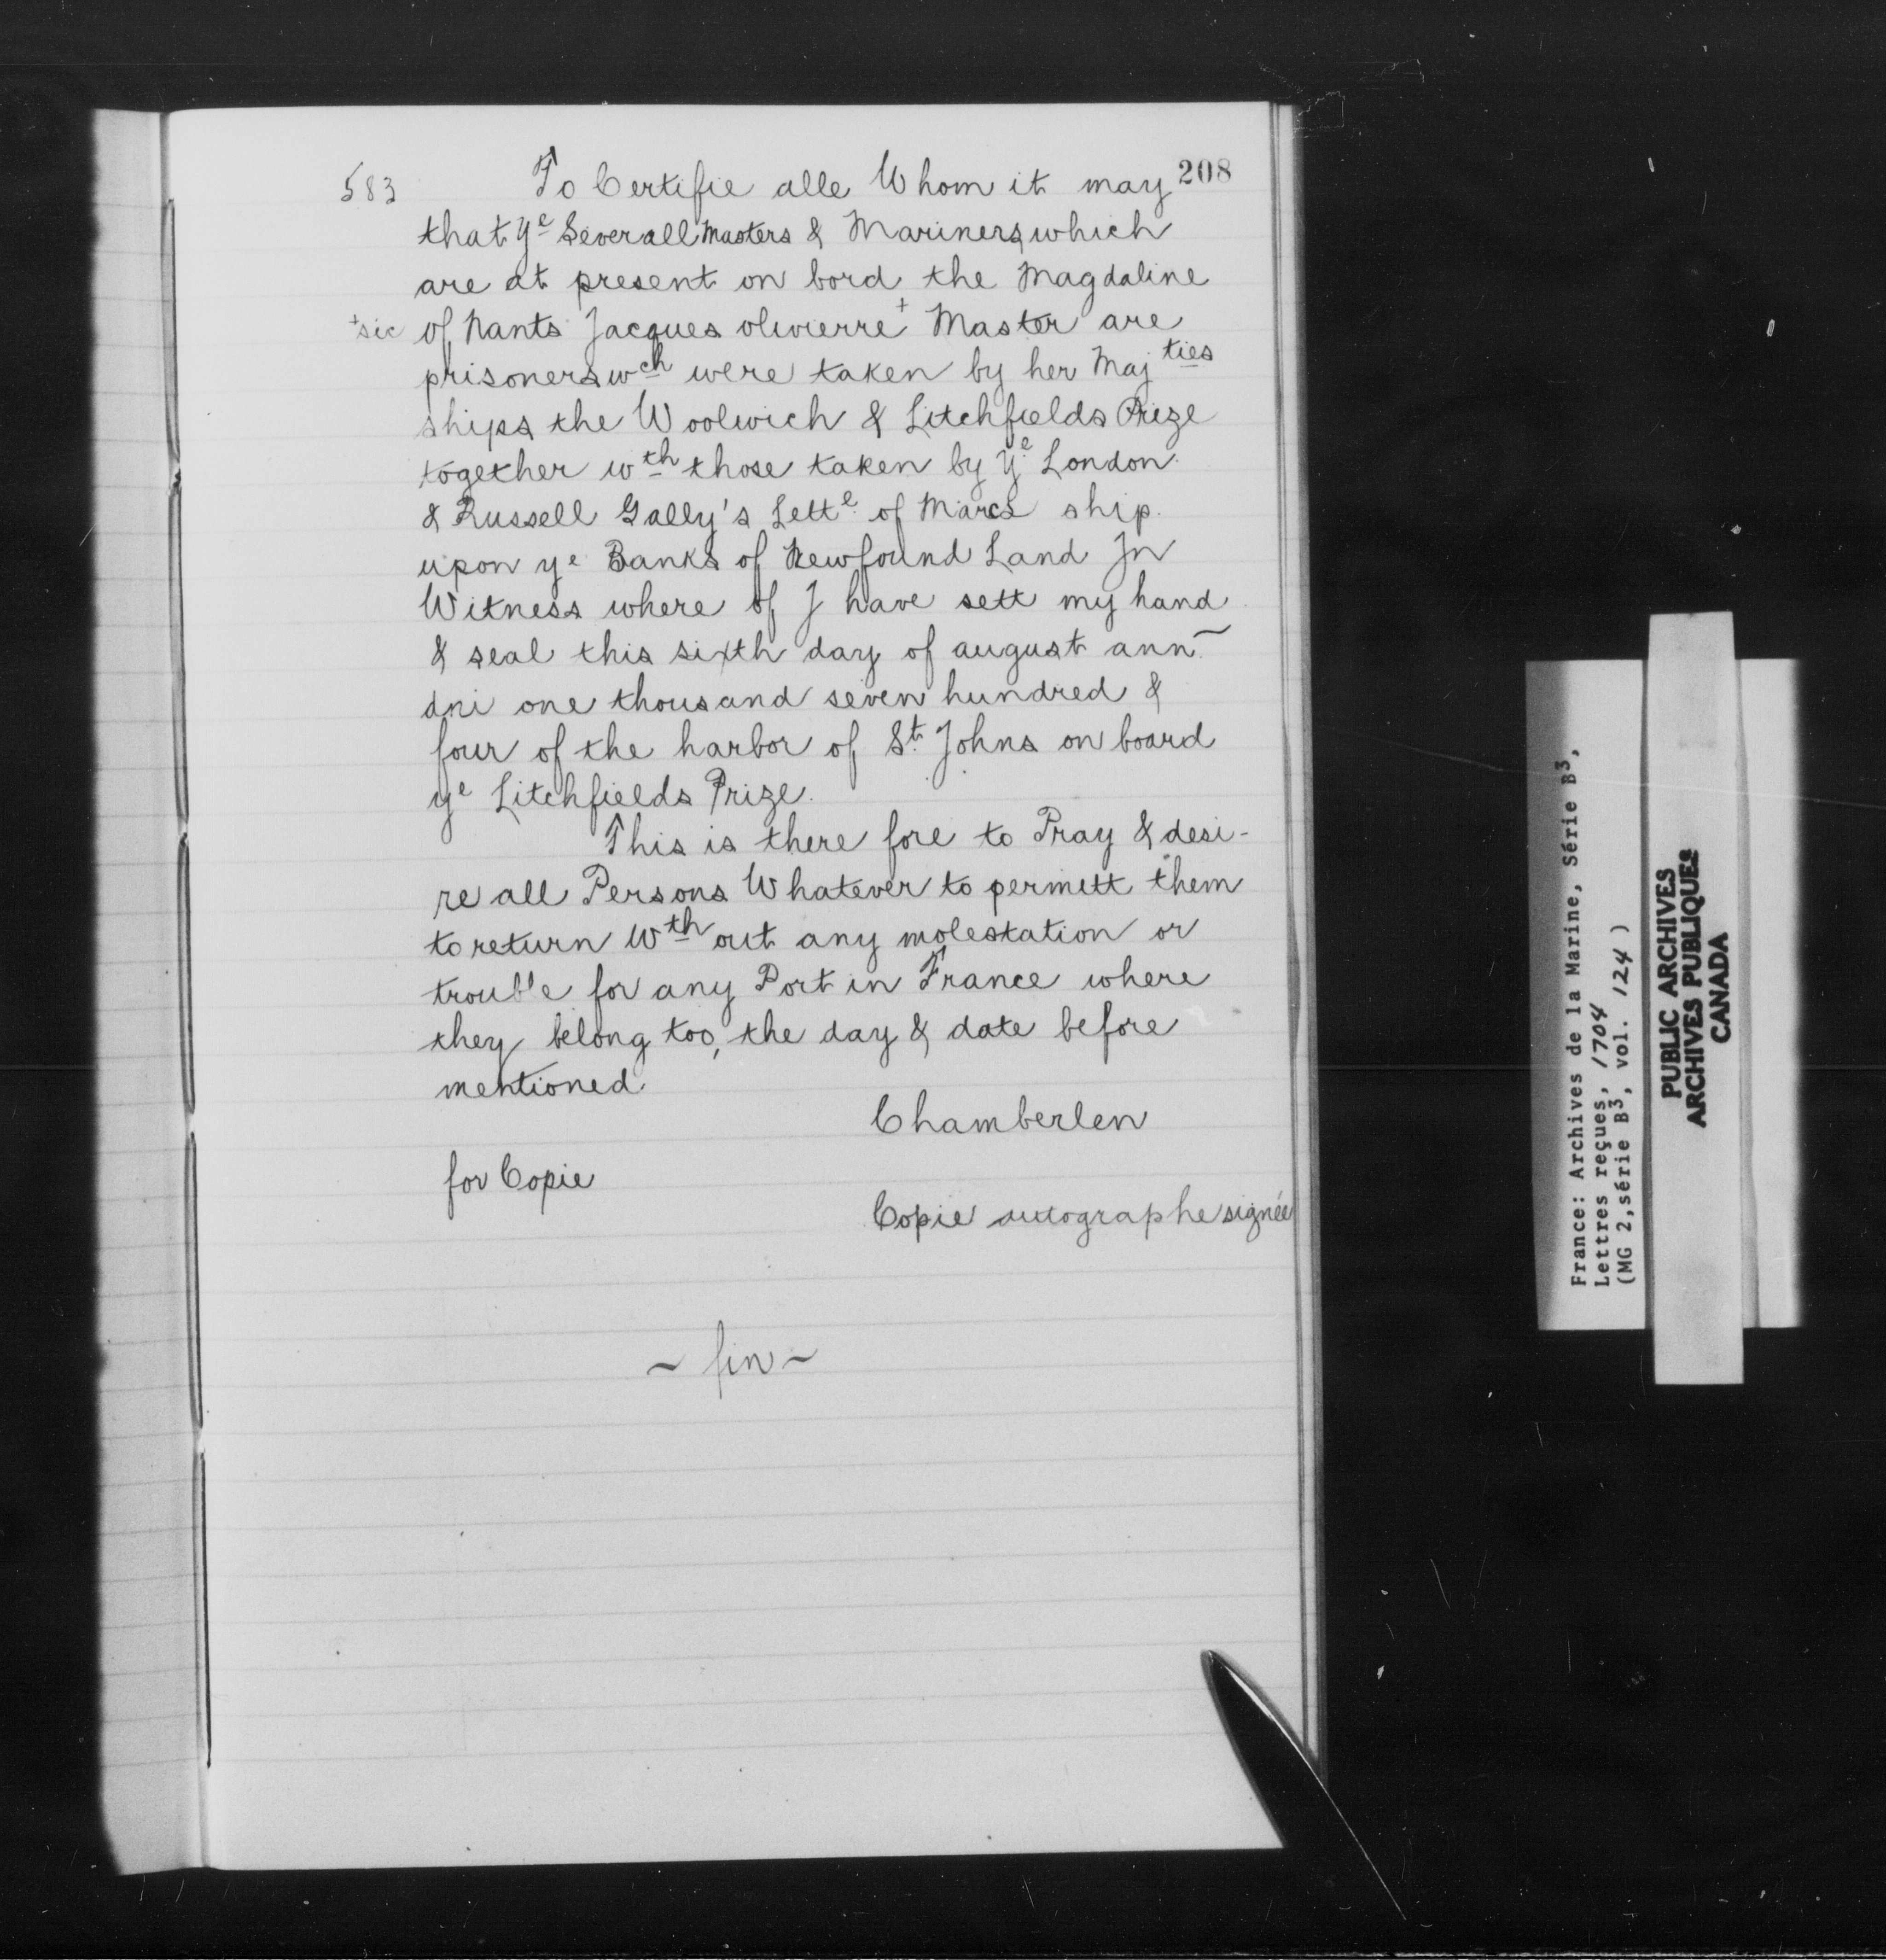 208
583 To Certifie alle Whom it may
that yᵉ Severall Masters & Mariners which
are at present on bord the Magdaline
+sic of Nants Jacques olivierre+ Master are
prisoners wch were taken by her Majties
ships the Woolwich & Litchfields Prize
together wth those taken by yᵉ London
& Russell Gally's Lettᵉ of Marcs ship
upon yᵉ Banks of Newfound Land Jn
Witness where of J have sett my hand
& seal this sixth day of august ann~
dni one thousand seven hundred &
four of the harbor of St. Johns on board
yᵉ Litchfields Prize.
This is there fore to Pray & desi-
re all Persons Whatever to permitt them
to return Wth out any molestation or
trouble for any Port in France where
they belong too, the day & date before
mentioned
Chamberlen
for Copie
Copie autographe signée
~ fin ~
France: Archives de la Marine, Série B3,
Lettres reçues, 1704
(MG 2, série B3, vol. 124 )
PUBLIC ARCHIVES
ARCHIVES PUBLIQUES
CANADA